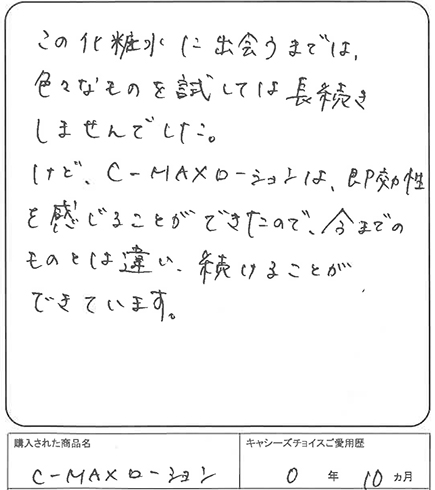 この化粧水に出会うまでは、
色々なものを試しては長続き
しませんでした。
けど、C-MAXローションは、即効性
を感じることができたので、今までの
ものとは違い、続けることが
できています。
購入された商品名
キャシーズチョイスご愛用歴
C-MAXローション
0 年 10 カ月